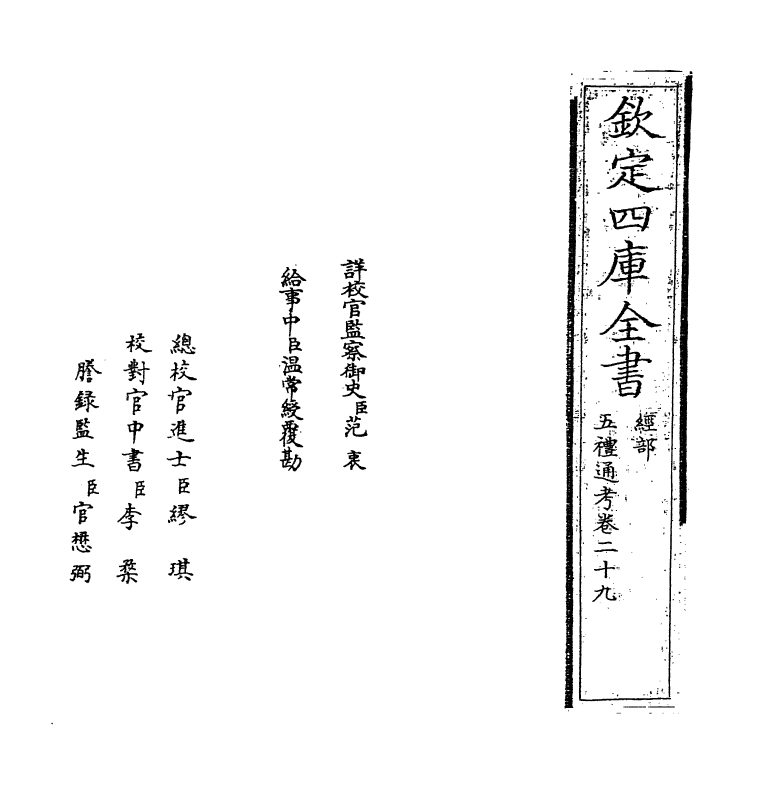 欽定四庫全書
經部
五禮通考卷二十九
詳校官監察御史臣范衷
給事中臣温常綬覆勘
總校官進士臣繆琪
校對官中書臣李楘
謄録監生臣官懋弼